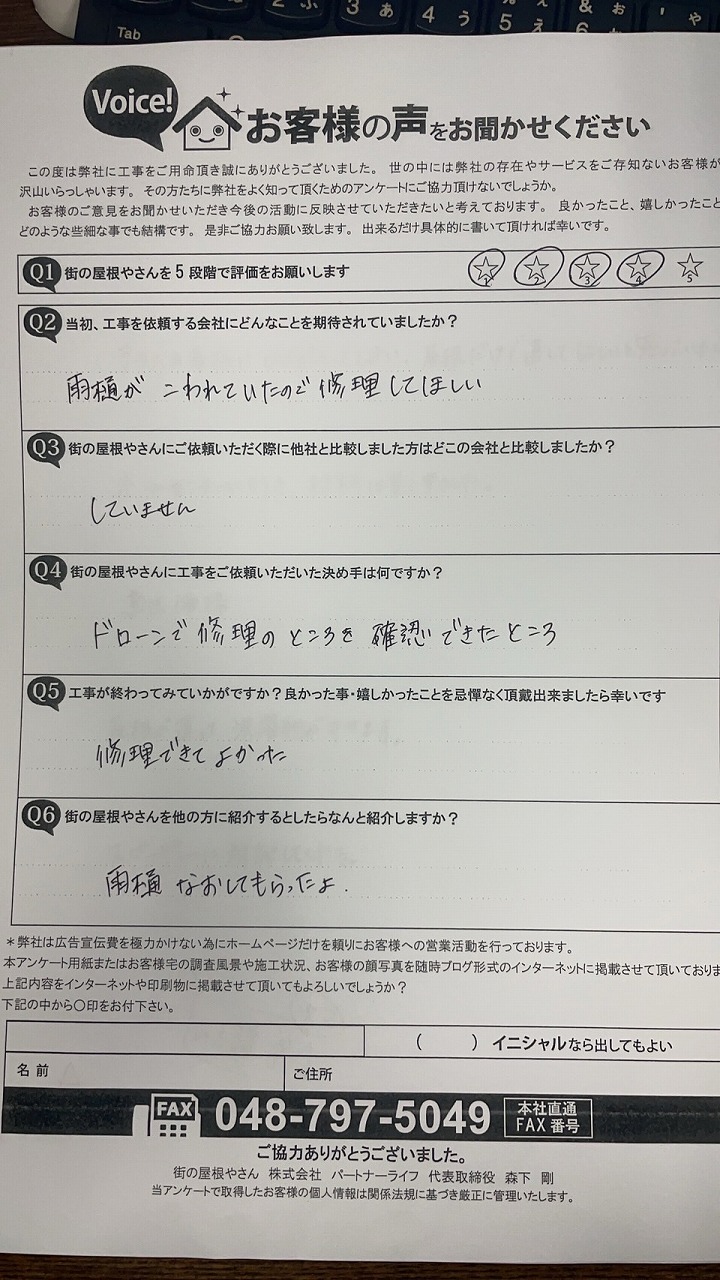 Tab
Voice!
お客様の声をお聞かせください
この度は弊社に工事をご用命頂き誠にありがとうございました。 世の中には弊社の存在やサービスをご存知ないお客様が
沢山いらっしゃいます。 その方たちに弊社をよく知って頂くためのアンケートにご協力頂けないでしょうか。
お客様のご意見をお聞かせいただき今後の活動に反映させていただきたいと考えております。 良かったこと、嬉しかったこと
どのような些細な事でも結構です。 是非ご協力お願い致します。 出来るだけ具体的に書いて頂ければ幸いです。
Q1 街の屋根やさんを5段階で評価をお願いします 1 2 3 4 5
Q2 当初、工事を依頼する会社にどんなことを期待されていましたか？
雨樋が こわれていたので修理してほしい
Q3 街の屋根やさんにご依頼いただく際に他社と比較しました方はどこの会社と比較しましたか？
していません
Q4 街の屋根やさんに工事をご依頼いただいた決め手は何ですか？
ドローンで修理のところを確認できたところ
Q5 工事が終わってみていかがですか？良かった事・嬉しかったことを忌憚なく頂戴出来ましたら幸いです
修理できてよかった
Q6 街の屋根やさんを他の方に紹介するとしたらなんと紹介しますか？
雨樋 なおしてもらったよ.
＊弊社は広告宣伝費を極力かけない為にホームページだけを頼りにお客様への営業活動を行っております。
本アンケート用紙またはお客様宅の調査風景や施工状況、お客様の顔写真を随時ブログ形式のインターネットに掲載させて頂いておりま
上記内容をインターネットや印刷物に掲載させて頂いてもよろしいでしょうか？
下記の中から〇印をお付下さい。
（ ） イニシャルなら出してもよい
名前 ご住所
FAX 048-797-5049 本社直通 FAX番号
ご協力ありがとうございました。
街の屋根やさん 株式会社 パートナーライフ 代表取締役 森下 剛
当アンケートで取得したお客様の個人情報は関係法規に基づき厳正に管理いたします。